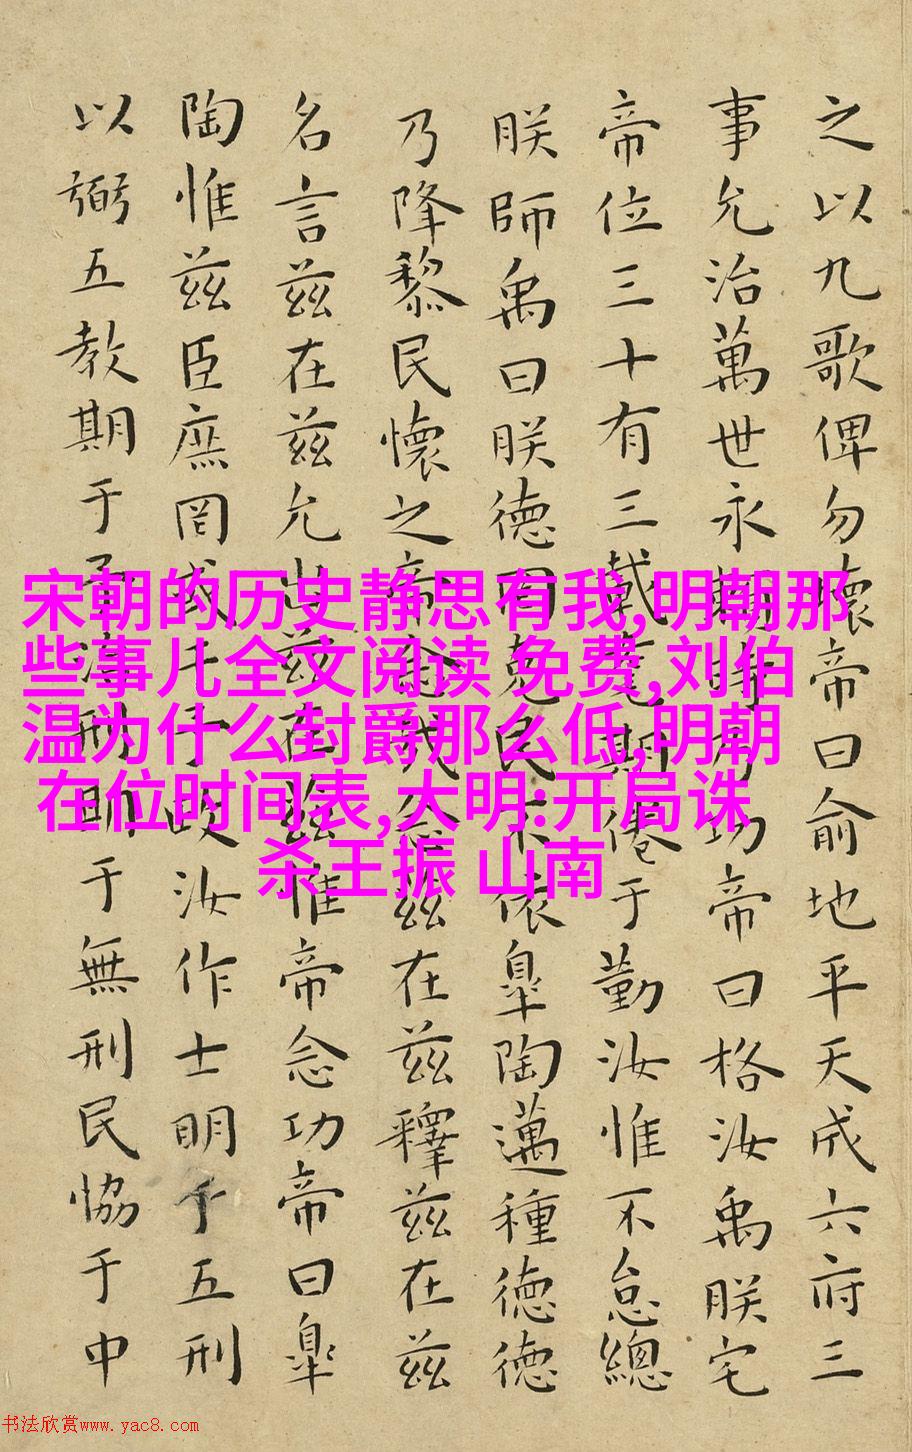 之以九歌俾勿壞帝曰俞地平天成六府三
事允治萬世永賴時乃功帝曰格汝禹朕宅
帝位三十有三載耄期倦于勤汝惟不怠總
朕師禹曰朕德罔克民不依臯陶邁種德德
乃降黎民懷之帝念哉念茲在茲釋茲在茲
名言茲在茲允出茲在茲惟帝念功帝曰臯
陶惟茲臣庶罔或干予政汝作士明于五刑
以弼五教期于予治刑期于無刑民協于中
宋朝的历史静思有我,明朝那
些事儿全文阅读 免费,刘伯
温为什么封爵那么低,明朝
在位时间表,大明:开局诛
杀王振 山南
书法欣赏www.yac8.com